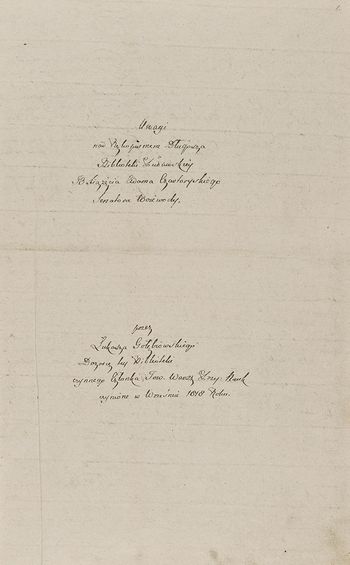 Uwagi
nad Rękopismem Długosza
Biblioteki Puławskiey
X. Książęcia Adama Czartoryskiego
Senatora Woiewody.
przez
Łukasza Gołębiowskiego
Dozorcę tey Biblioteki
czynnego Członka Tow. Warsz. Przy. Nauk
czynione w Wrześniu 1818 Roku.